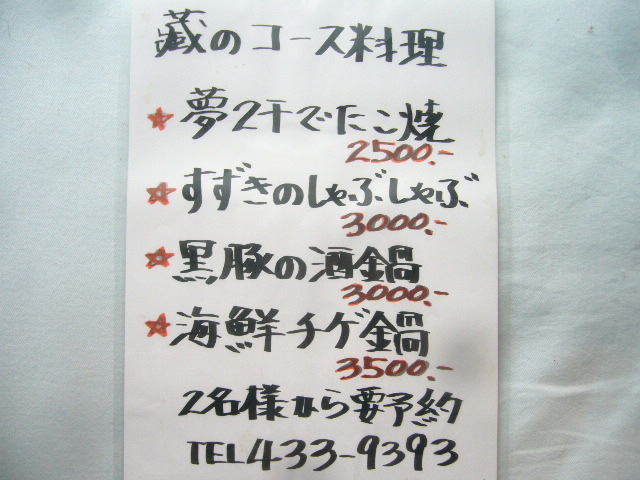 蔵のコース料理
★夢2千でたこ焼
2500.-
★すずきのしゃぶしゃぶ
3000.-
★黒豚の酒鍋
3000.-
★海鮮チゲ鍋
3500.-
2名様から要予約
TEL433-9393